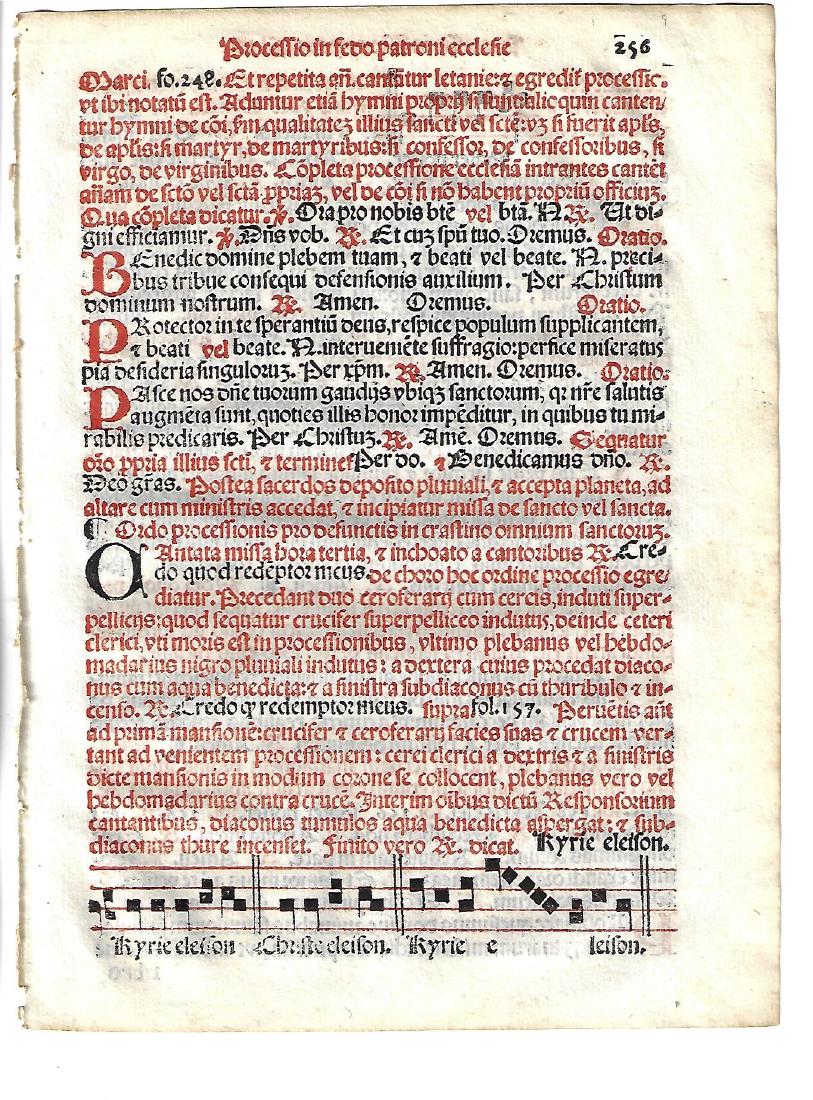 Processio in festo patroni ecclesie 256
Marci. fo.248. Et repetita añ. cantātur letanie: ⁊ egredit̃ processio.
vt ibi notatū est. Aduntur etiā hymni proprij si sunt: alioquin canten/
tur hymni de cōi, s̃m qualitatez illius sancti vel scte: vz si fuerit apl̃s,
de apl̃is: si martyr, de martyribus: si confessor, de confessoribus, si
virgo, de virginibus. Cōpleta processione ecclesiā intrantes cantēt
añam de sctō vel sctā ꝓpriaz, vel de cōi si nō habent propriū officiuz.
Qua cōpleta dicatur. ℣. Ora pro nobis btē vel btā. N. ℟. Ut di-
gni efficiamur. ℣. Dñs vob. ℟. Et cuz spũ tuo. Oremus. Oratio.
BEnedic domine plebem tuam, ⁊ beati vel beate. N. preci-
bus tribue consequi defensionis auxilium. Per Christum
dominum nostrum. ℟. Amen. Oremus. Oratio.
PRotector in te sperantiū deus, respice populum supplicantem,
⁊ beati vel beate. N. interueniēte suffragio: perfice miseratus
pia desideria singuloruz. Per xp̃m. ℟. Amen. Oremus. Oratio.
PAsce nos dñe tuorum gaudijs vbiqz sanctorum, qr nr̃e salutis
augmēta sunt, quoties illis honor impēditur, in quibus tu mi-
rabilis predicaris. Per Christuz. ℟. Amē. Oremus. Sequatur
orõ ꝓpria illius scti, ⁊ terminet̃ Per do. ⁊ Benedicamus dño. ℟.
Deo gr̃as. Postea sacerdos deposito pluuiali, ⁊ accepta planeta, ad
altare cum ministris accedat, ⁊ incipiatur missa de sancto vel sancta.
¶ Ordo processionis pro defunctis in crastino omnium sanctoruz.
CAntata missa hora tertia, ⁊ inchoato a cantoribus ℟. Cre-
do quod redēptor meus. de choro hoc ordine processio egre/
diatur. Precedant duo ceroferarij cum cereis, induti super-
pellicijs: quod sequatur crucifer superpelliceo indutus, deinde ceteri
clerici, vti moris est in processionibus, vltimo plebanus vel hebdo-
madarius nigro pluuiali indutus: a dextera cuius procedat diaco-
nus cum aqua benedicta: ⁊ a sinistra subdiaconus cū thuribulo ⁊ in-
censo. ℟. Credo qp redemptor meus. supra fol.157. Peruētis aūt
ad primā mansionē: crucifer ⁊ ceroferarij facies suas ⁊ crucem ver-
tant ad venientem processionem: cerei clerici a dextris ⁊ a sinistris
dicte mansionis in modum corone se collocent, plebanus vero vel
hebdomadarius contra crucē. Interim oĩbus dictū Responsorium
cantantibus, diaconus tumulos aqua benedicta aspergat: ⁊ sub-
diaconus thure incenset. Finito vero ℟. dicat. Kyrie eleison.
Kyrie eleison Christe eleison. Kyrie e leison.